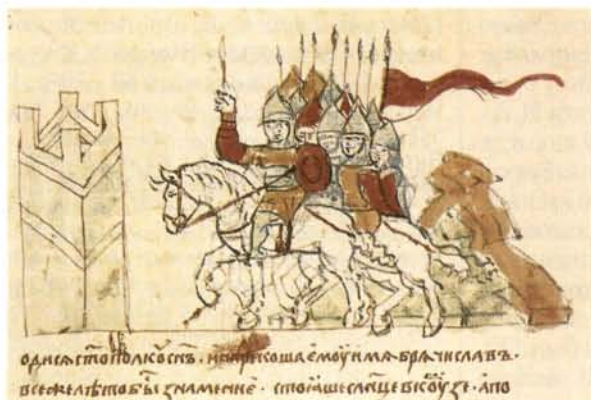 одисѧ ст҃ополкоу сн҃ъ · и нарекоша ємоу имѧ брѧчиславъ ·
все же лѣто бы ́ знамение · стоꙗше сл҃нце в кроузѣ · а по